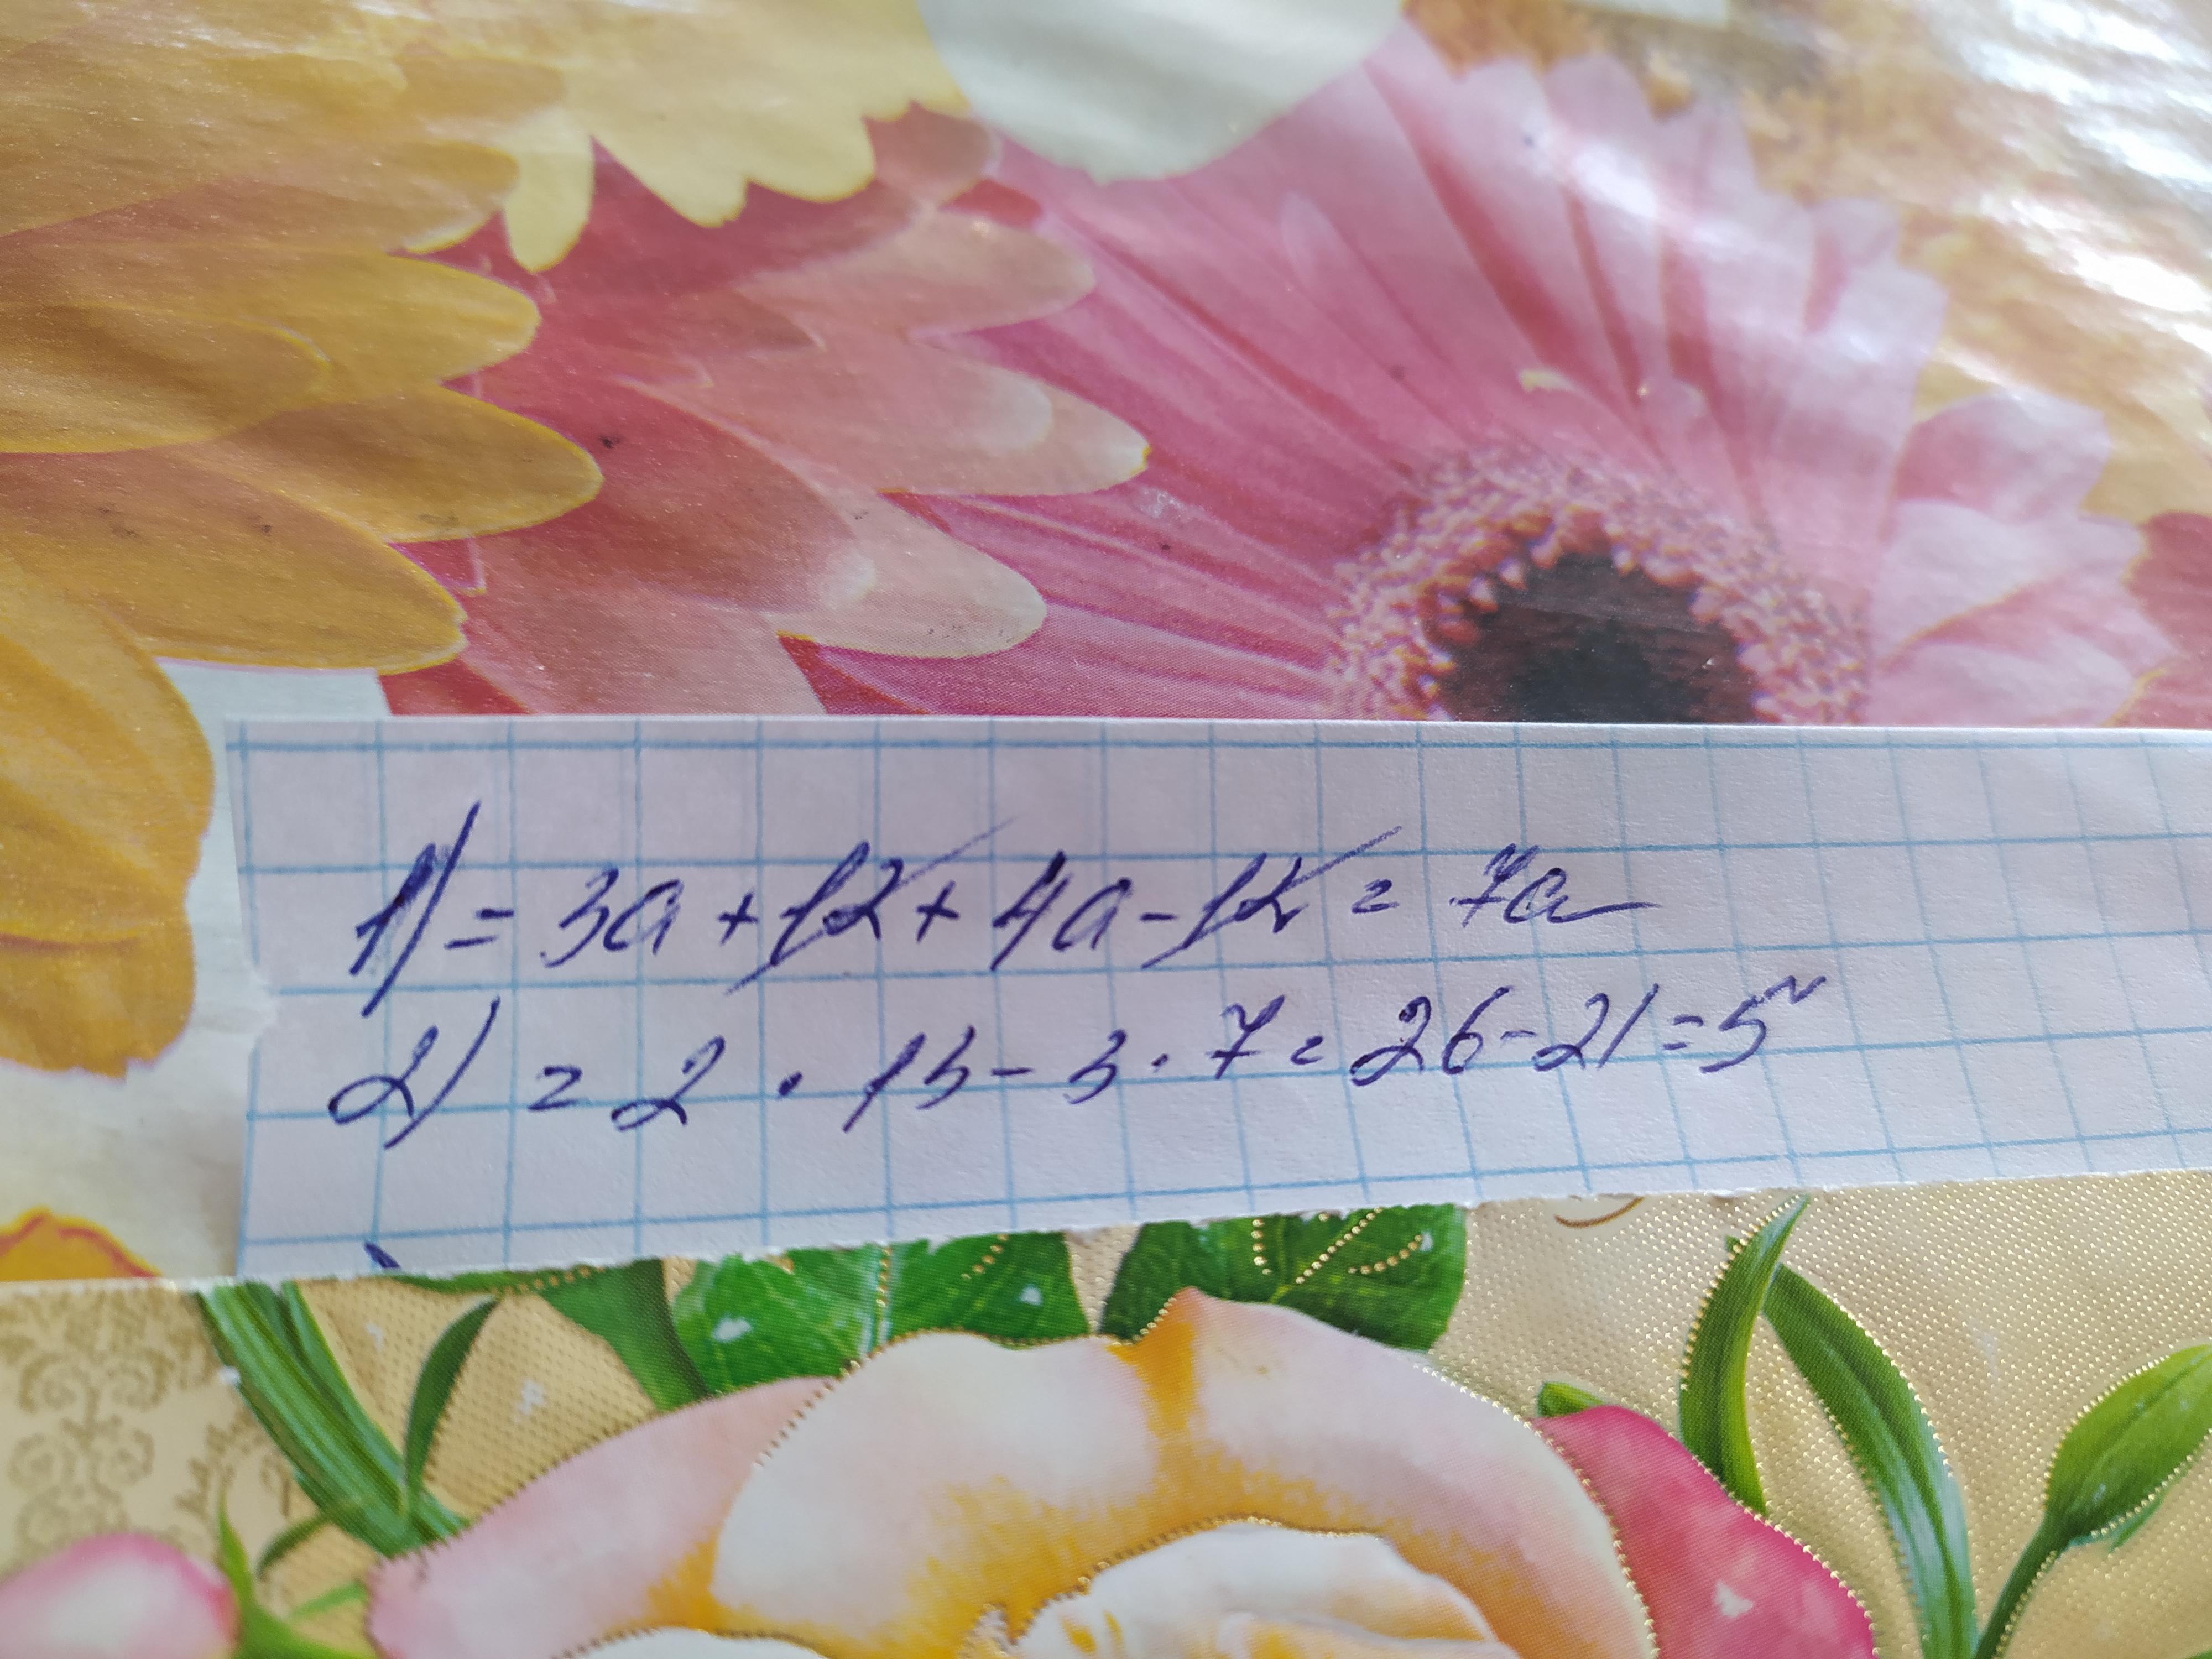 1) = 3a + 12 + 4a - 12 = 7a
2) = 2 · 13 - 3 · 7 = 26 - 21 = 5